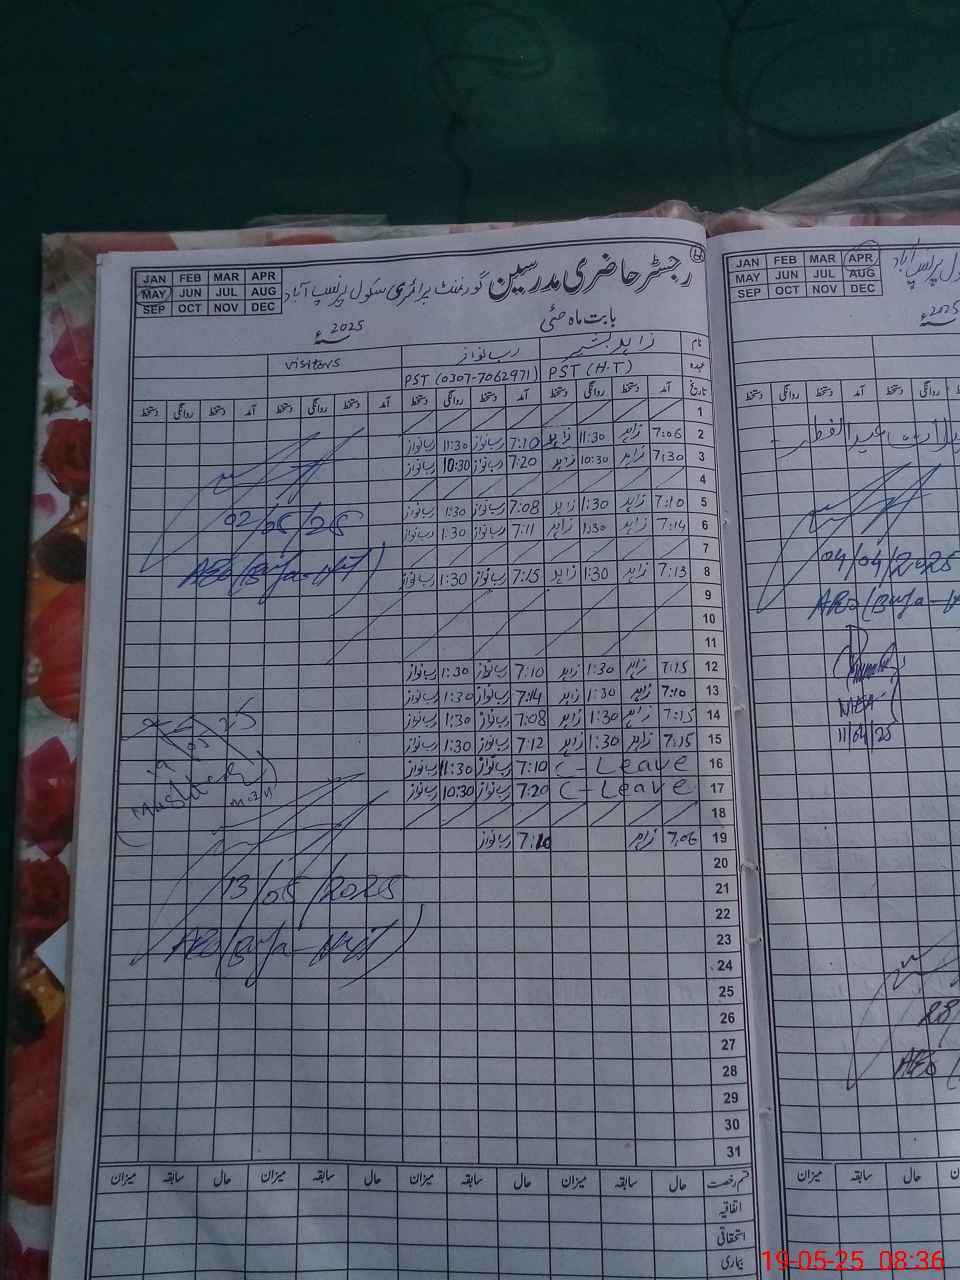 JAN FEB MAR APR
MAY JUN JUL AUG
SEP OCT NOV DEC
رجسٹر حاضری مدرسین گورنمنٹ پرائمری سکول
بابت ماہ مئی 2025ء
نام زاہد بشیر رب نواز visitors
عہدہ PST (H.T) PST (0307-7062971)
تاریخ آمد دستخط روانگی دستخط آمد دستخط روانگی دستخط آمد دستخط روانگی دستخط آمد دستخط روانگی دستخط
1
2 7:06 زاہد 11:30 زاہد 7:10 رب نواز 11:30 رب نواز
3 7:30 زاہد 10:30 زاہد 7:20 رب نواز 10:30 رب نواز
4
5 7:10 زاہد 1:30 زاہد 7:08 رب نواز 1:30 رب نواز
02/05/25
6 7:14 زاہد 1:30 زاہد 7:11 رب نواز 1:30 رب نواز
7
8 7:13 زاہد 1:30 زاہد 7:15 رب نواز 1:30 رب نواز
9
10
11
12 7:15 زاہد 1:30 زاہد 7:10 رب نواز 1:30 رب نواز
13 7:10 زاہد 1:30 زاہد 7:14 رب نواز 1:30 رب نواز
14 7:15 زاہد 1:30 زاہد 7:08 رب نواز 1:30 رب نواز
15 7:15 زاہد 1:30 زاہد 7:12 رب نواز 1:30 رب نواز
16 C-Leave 7:10 رب نواز 11:30 رب نواز
17 C-Leave 7:20 رب نواز 10:30 رب نواز
18
19 7:06 زاہد 7:10 رب نواز
20
21
13/05/2025
22
23
24
25
26
27
28
29
30
31
قسم رخصت حال سابقہ میزان حال سابقہ میزان حال سابقہ میزان حال سابقہ میزان
اتفاقیہ
استحقاقی
بیماری
JAN FEB MAR APR
MAY JUN JUL AUG
SEP OCT NOV DEC
2025ء
دستخط روانگی دستخط
عید الفطر
04/04/2025
11/04/25
میزان سابقہ حال
19-05-25 08:36